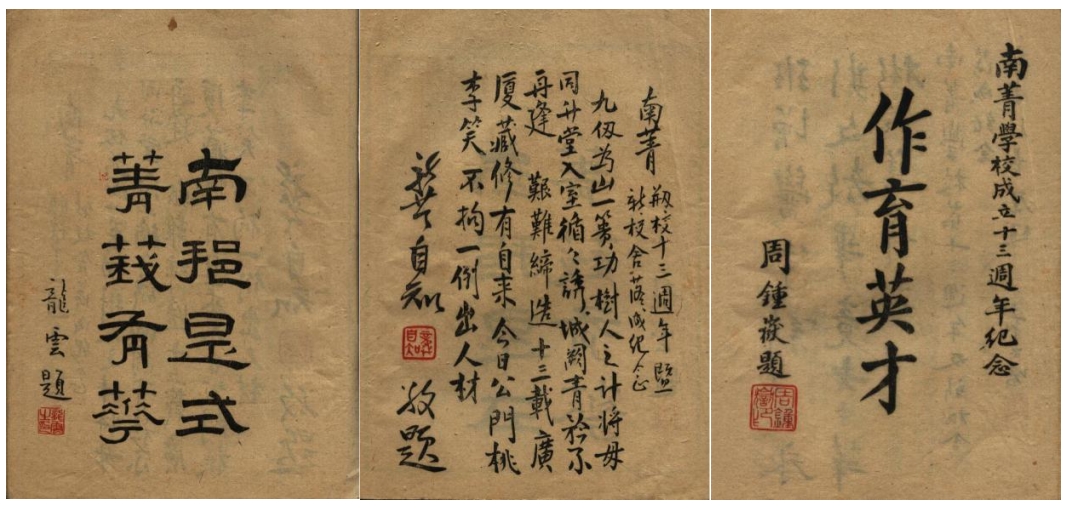 南是式
菁莪有華
龍雲題
南菁 剏校十三週年暨
新校舍落成紀念
九仞為山一簣功樹人之計將毋
同升堂入室循々誘城闕青衿不
再逢 艱難締造十三載廣
廈藏修有自來今日公門桃
李笑不拘一例出人材
龔自知 敬題
南菁學校成立十三週年紀念
作育英才
周鍾嶽題